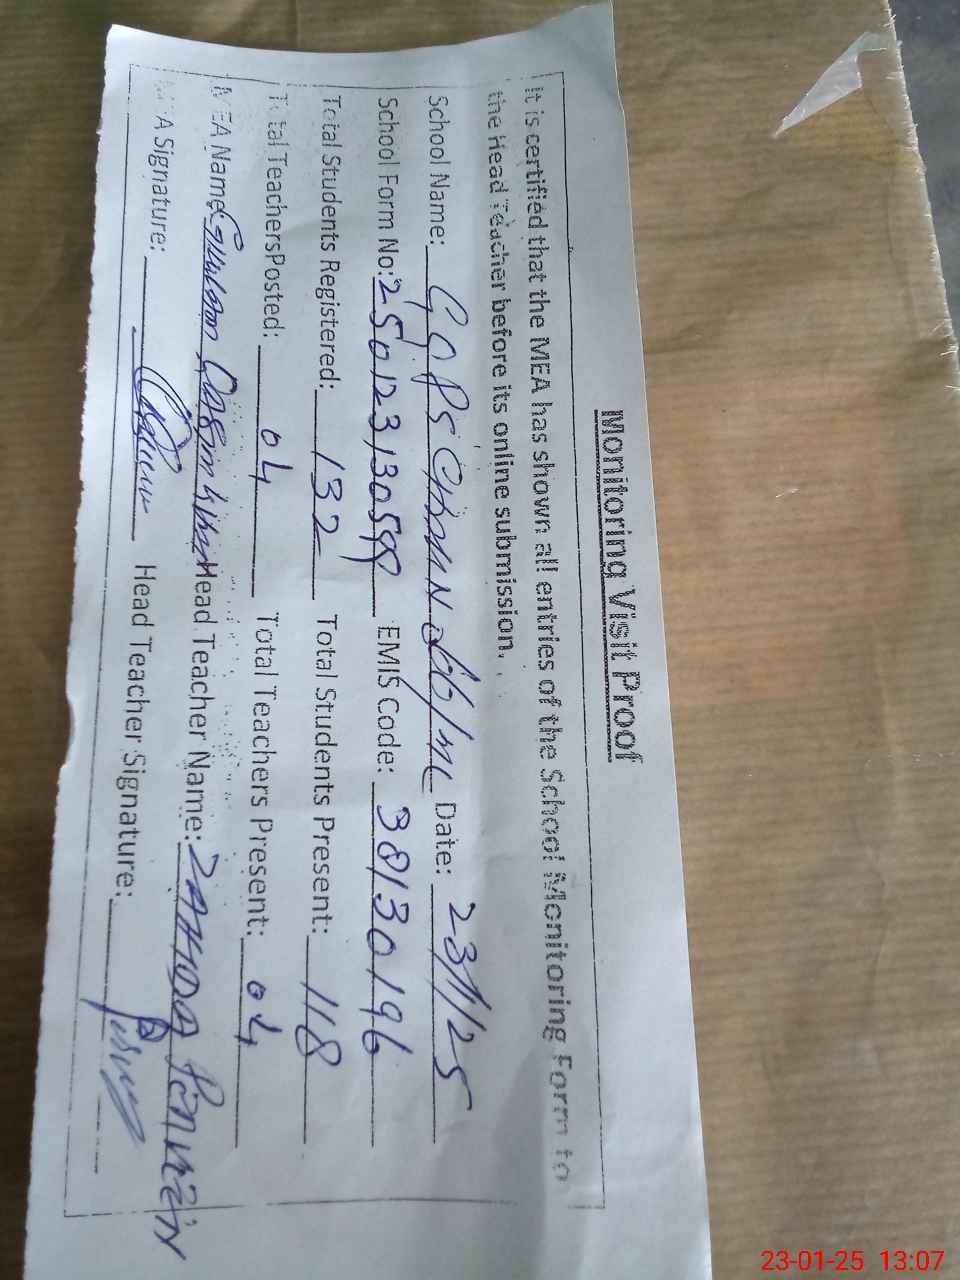 Monitoring Visit Proof
It is certified that the MEA has shown all entries of the School Monitoring Form to
the Head Teacher before its online submission.
School Name: GGPS Date: 23/1/25
School Form No: EMIS Code: 38130196
Total Students Registered: 132 Total Students Present: 118
Total TeachersPosted: 04 Total Teachers Present: 04
MEA Name: Head Teacher Name: ZAHIDA PERVEEN
MEA Signature: Head Teacher Signature:
23-01-25 13:07